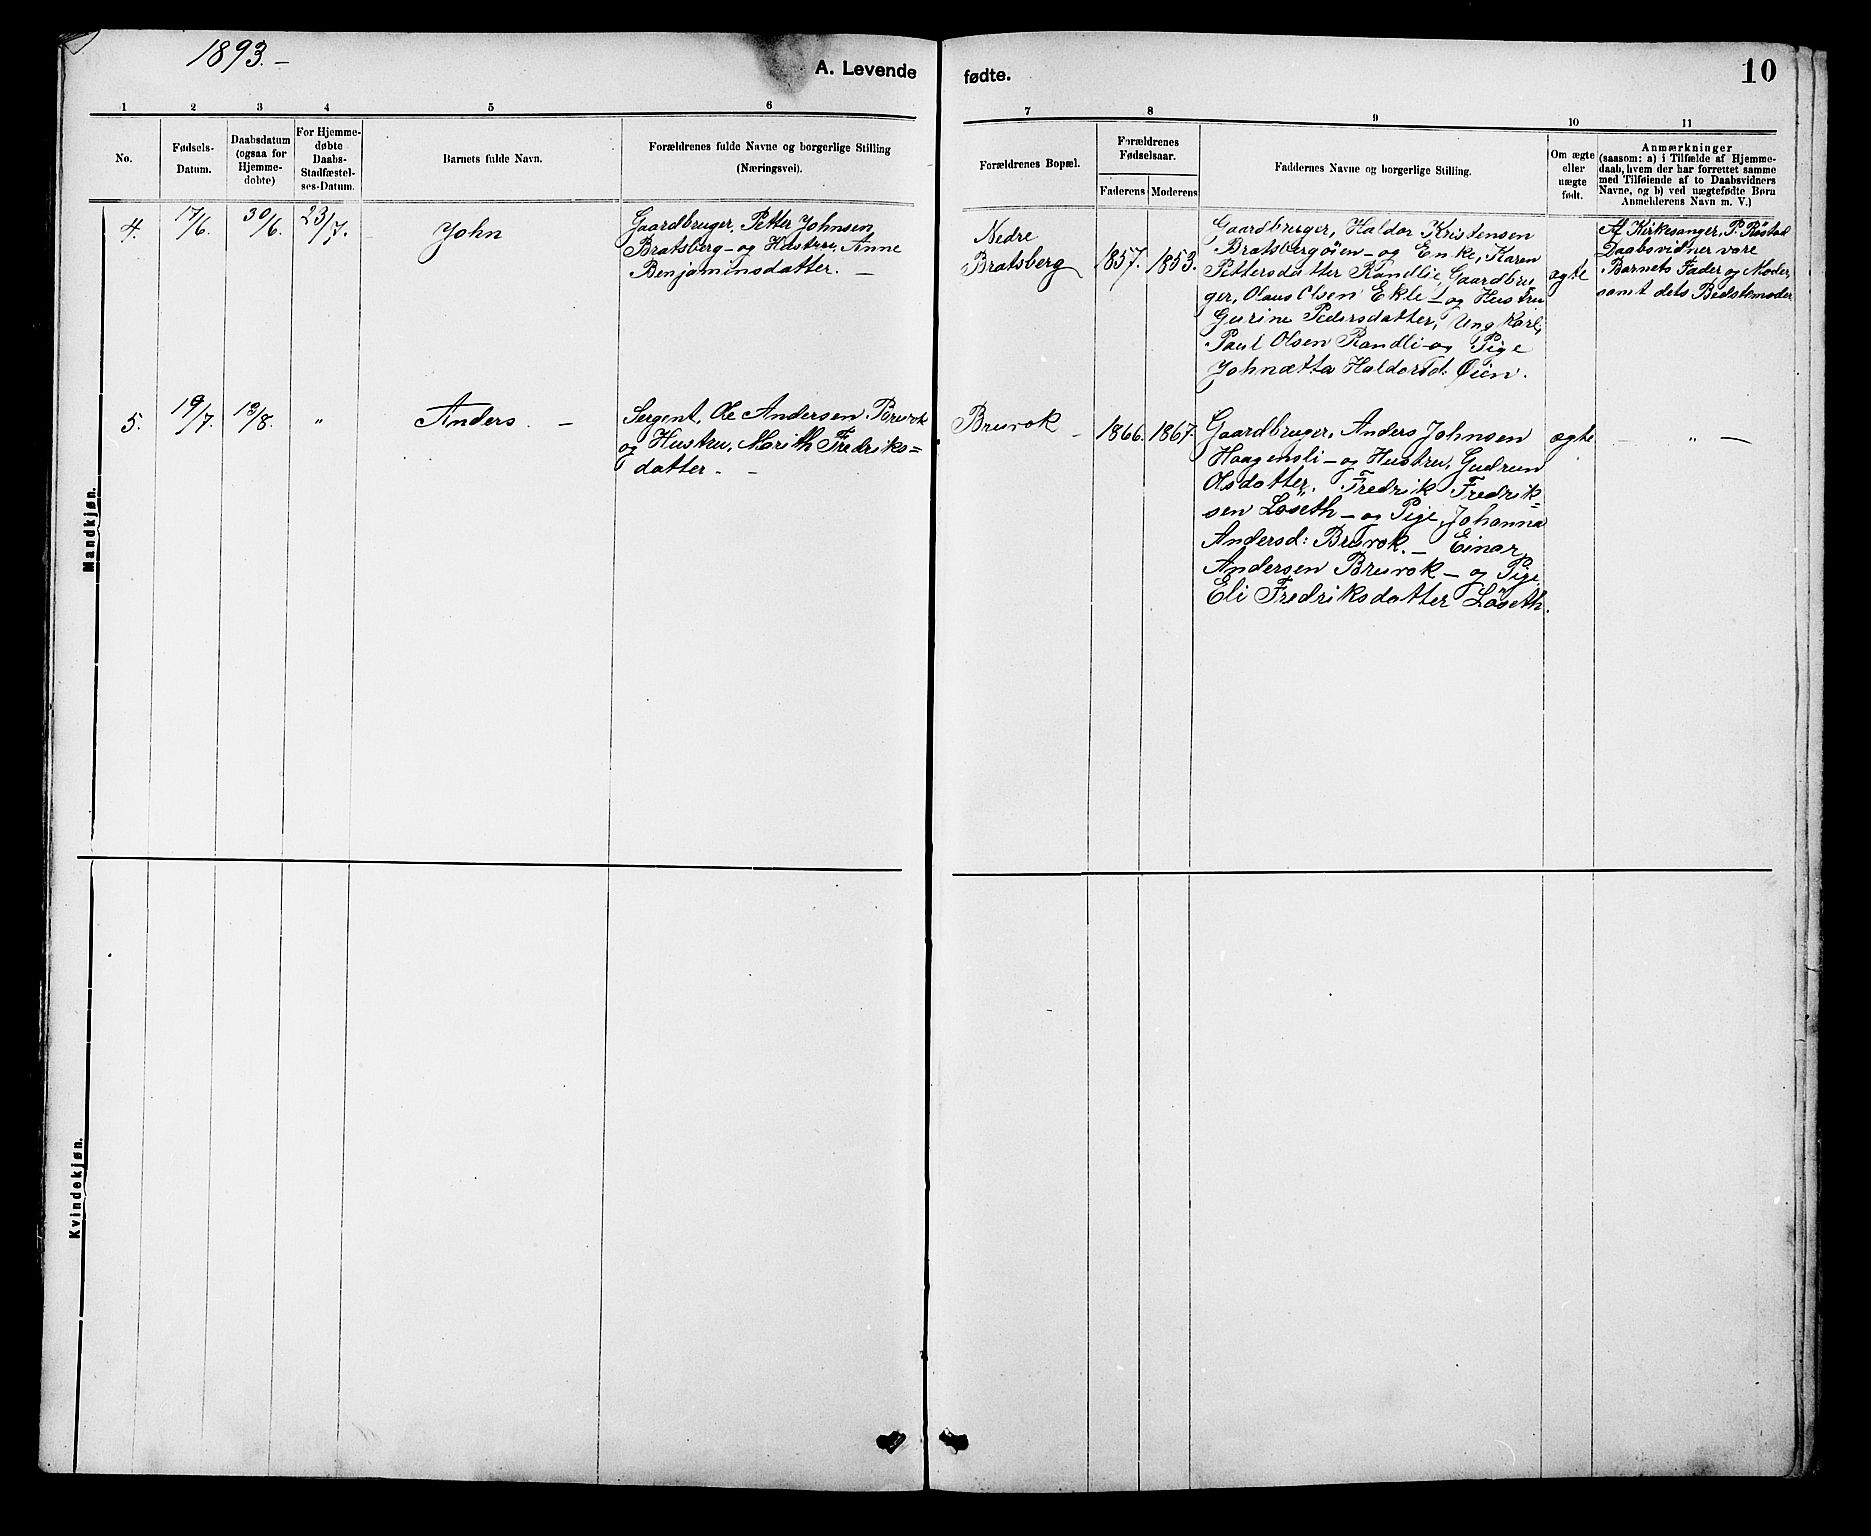 1893. –
A. Levende
fødte.
10
1
2
3
4
5
6
7
8
9
10
11
No.
Fødsels-
Datum.
Daabsdatum
(ogsaa for
Hjemme-
døbte)
For Hjemme-
døbte
Daabs-
Stadfæstel-
ses-Datum.
Barnets fulde Navn.
Forældrenes fulde Navne og borgerlige Stilling
(Næringsvei).
Forældrenes Bopæl.
Forældrenes
Fødselsaar.
Faderens
Moderens
Faddernes Navne og borgerlige Stilling.
Om ægte
eller
uægte
født.
Anmærkninger
(saasom: a) i Tilfælde af Hjemme-
daab, hvem der har forrettet samme
med Tilføiende af to Daabsvidners
Navne, og b) ved uægtefødte Børn
Anmelderens Navn m. V.)
Mandkjøn.
4.
17/6.
30/6.
23/7.
John
Gaardbruger, Petter Johnsen
Bratsberg – og Hustru, Anne
Benjaminsdatter. –
Nedre
Bratsberg
1857.
1853.
Gaardbruger, Haldor Kristensen
Bratsbergöien – og Enke, Karen
Pettersdatter Randlie, Gaardbru
ger, Olaus Olsen Ekle – og Hustru
Gurine Pedersdatter, Ung Karl,
Paul Olsen Randli – og Pige
Johnætta Haldorsd. Öien.
ægte
Af Kirkesanger, P. Röstad
Daabsvidner vare
Barnets Fader og Moder
samt dets Bedstemoder
5.
19/7.
13/8.
"
Anders. –
Sergent, Ole Andersen Bruvok
og Hustru, Marith Fredriks=
datter. –
Bruvok –
1866.
1867.
Gaardbruger, Anders Johnsen
Haagensli – og Hustru, Gudrun
Olsdatter. Fredrik Fredrik=
sen Löseth – og Pige, Johanna
Andersd: Bruvok. – Einar
Andersen Bruvok – og Pige
Eli Fredriksdatter Löseth.
ægte
– " –
Kvindekjøn.